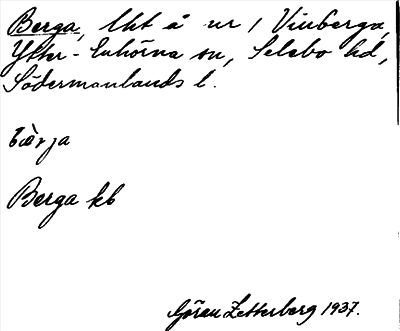 Berga, lht å nr 1 Vinberga,
Ytter-Enhörna sn, Selebo hd,
Södermanlands l.
bær̀ja
Berga kb
Göran Zetterberg 1937.